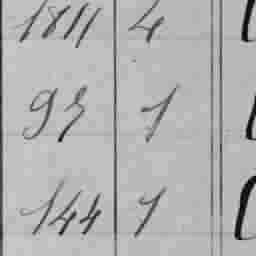 1811 4
95 1
144 1